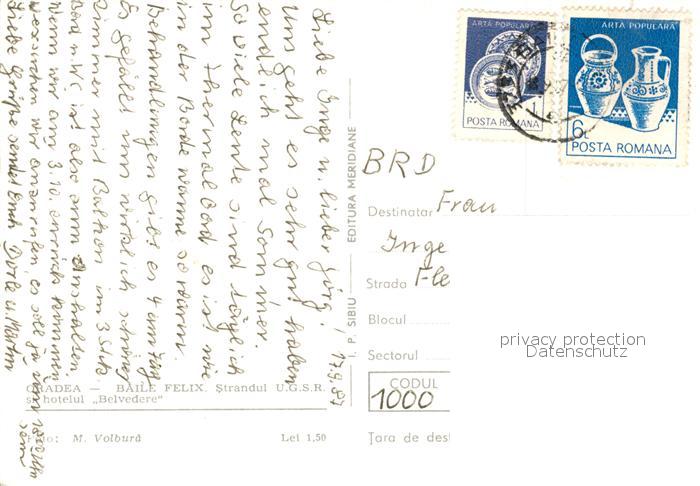 17.9.87
Liebe Inge u. lieber Jürg!
Uns geht es sehr gut haben
endlich mal Sommer.
So viele Leute sind täglich
im Thermalbad es ist wie
in der Badewanne so warm.
Behandlungen gibt es 4 am Tag
Es gefällt uns wirklich
Zimmer mit Balkon im 3 Stck.
Bad u. WC ist also zum Aushalten
Wenn wir am 3.10. zurück kommen
versuchen wir anzurufen, es soll ja
Liebe Grüße sendet Euch Dorle u. Martin
ORADEA — BĂILE FELIX. Ştrandul U.G.S.R.
şi hotelul „Belvedere"
Foto: M. Volbură Lei 1,50
I. P. SIBIU — EDITURA MERIDIANE
ARTA POPULARĂ
1L
POSTA ROMANA
ARTA POPULARĂ
6L
POSTA ROMANA
BRD
Destinatar Frau
Inge
Strada Fle
Blocul
Sectorul
CODUL
1000
Ţara de dest
privacy protection
Datenschutz